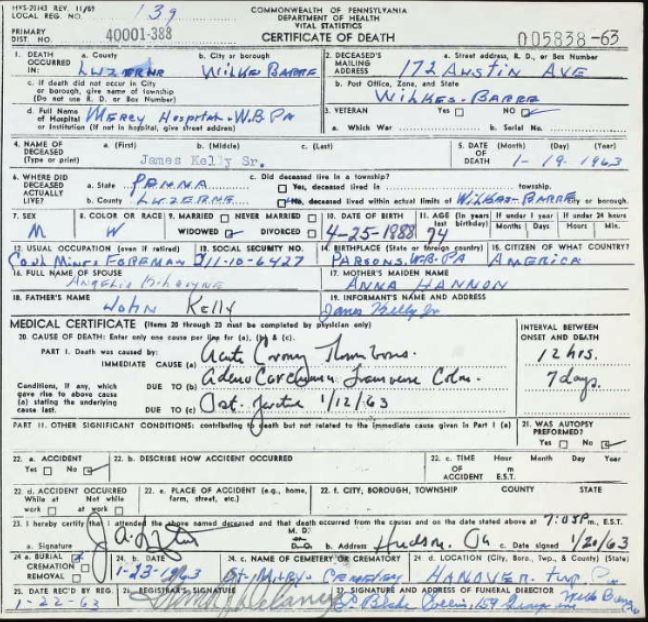 HVS-20143 REV. 11/69
LOCAL REG. NO. 139
COMMONWEALTH OF PENNSYLVANIA
DEPARTMENT OF HEALTH
VITAL STATISTICS
PRIMARY DIST. NO. 40001-388
CERTIFICATE OF DEATH
005838-63
1. DEATH OCCURRED IN: a. County LUZERNE b. City or borough WILKES BARRE
c. If death did not occur in City or borough, give name of township (Do not use R. D. or Box Number)
d. Full Name of Hospital or Institution (If not in hospital, give street address) MERCY Hospital - W.B PA
2. DECEASED'S MAILING ADDRESS a. Street address, R. D., or Box Number 172 AUSTIN AVE
b. Post Office, Zone, and State WILKES-BARRE
3. VETERAN Yes NO
a. Which War b. Serial No.
4. NAME OF DECEASED (Type or print) a. (First) b. (Middle) c. (Last) James Kelly Sr.
5. DATE OF DEATH (Month) (Day) (Year) 1-19-1963
6. WHERE DID DECEASED ACTUALLY LIVE? a. State PENNA
b. County LUZERNE
c. Did deceased live in a township?
Yes, deceased lived in township.
No, deceased lived within actual limits of WILKES-BARRE city or borough.
7. SEX M
8. COLOR OR RACE W
9. MARRIED NEVER MARRIED
WIDOWED DIVORCED
10. DATE OF BIRTH 4-25-1988
11. AGE (In years last birthday) 74
If under 1 year Months Days
If under 24 hours Hours Min.
12. USUAL OCCUPATION (even if retired) COAL MINES FOREMAN
13. SOCIAL SECURITY NO. 211-10-6427
14. BIRTHPLACE (State or foreign country) PARSONS, W.B PA
15. CITIZEN OF WHAT COUNTRY? AMERICA
16. FULL NAME OF SPOUSE
17. MOTHER'S MAIDEN NAME ANNA HANNON
18. FATHER'S NAME JOHN Kelly
19. INFORMANT'S NAME AND ADDRESS James Kelly Jr
MEDICAL CERTIFICATE (Items 20 through 23 must be completed by physician only)
20. CAUSE OF DEATH: Enter only one cause per line for (a), (b) & (c).
INTERVAL BETWEEN ONSET AND DEATH
PART I. Death was caused by:
IMMEDIATE CAUSE (a) Acute Coronary Thrombosis 12 hrs.
Conditions, if any, which gave rise to above cause (a) stating the underlying cause last.
DUE TO (b) Adeno Carcinoma Transverse Colon. 7 days.
DUE TO (c) 1/12/63
PART II. OTHER SIGNIFICANT CONDITIONS: contributing to death but not related to the immediate cause given in Part I (a)
21. WAS AUTOPSY PREFORMED?
Yes No
22. a. ACCIDENT
Yes No
22. b. DESCRIBE HOW ACCIDENT OCCURRED
22. c. TIME OF ACCIDENT Hour m E.S.T. Month Day Year
22. d. ACCIDENT OCCURRED
While at work Not while at work
22. e. PLACE OF ACCIDENT (e.g., home, farm, street, etc.)
22. f. CITY, BOROUGH, TOWNSHIP COUNTY STATE
23. I hereby certify that I attended the above named deceased and that death occurred from the causes and on the date stated above at 7:05P m., E.S.T.
a. Signature M. D. b. Address Hudson, Pa c. Date signed 1/20/63
24. a. BURIAL
CREMATION
REMOVAL
24. b. DATE 1-23-1963
24. c. NAME OF CEMETERY OR CREMATORY St. Marys Cemetery
24. d. LOCATION (City, Boro, Twp., & County) (State) HANOVER Twp. Pa
25. DATE REC'D BY REG. 1-22-63
26. REGISTRAR'S SIGNATURE
27. SIGNATURE AND ADDRESS OF FUNERAL DIRECTOR